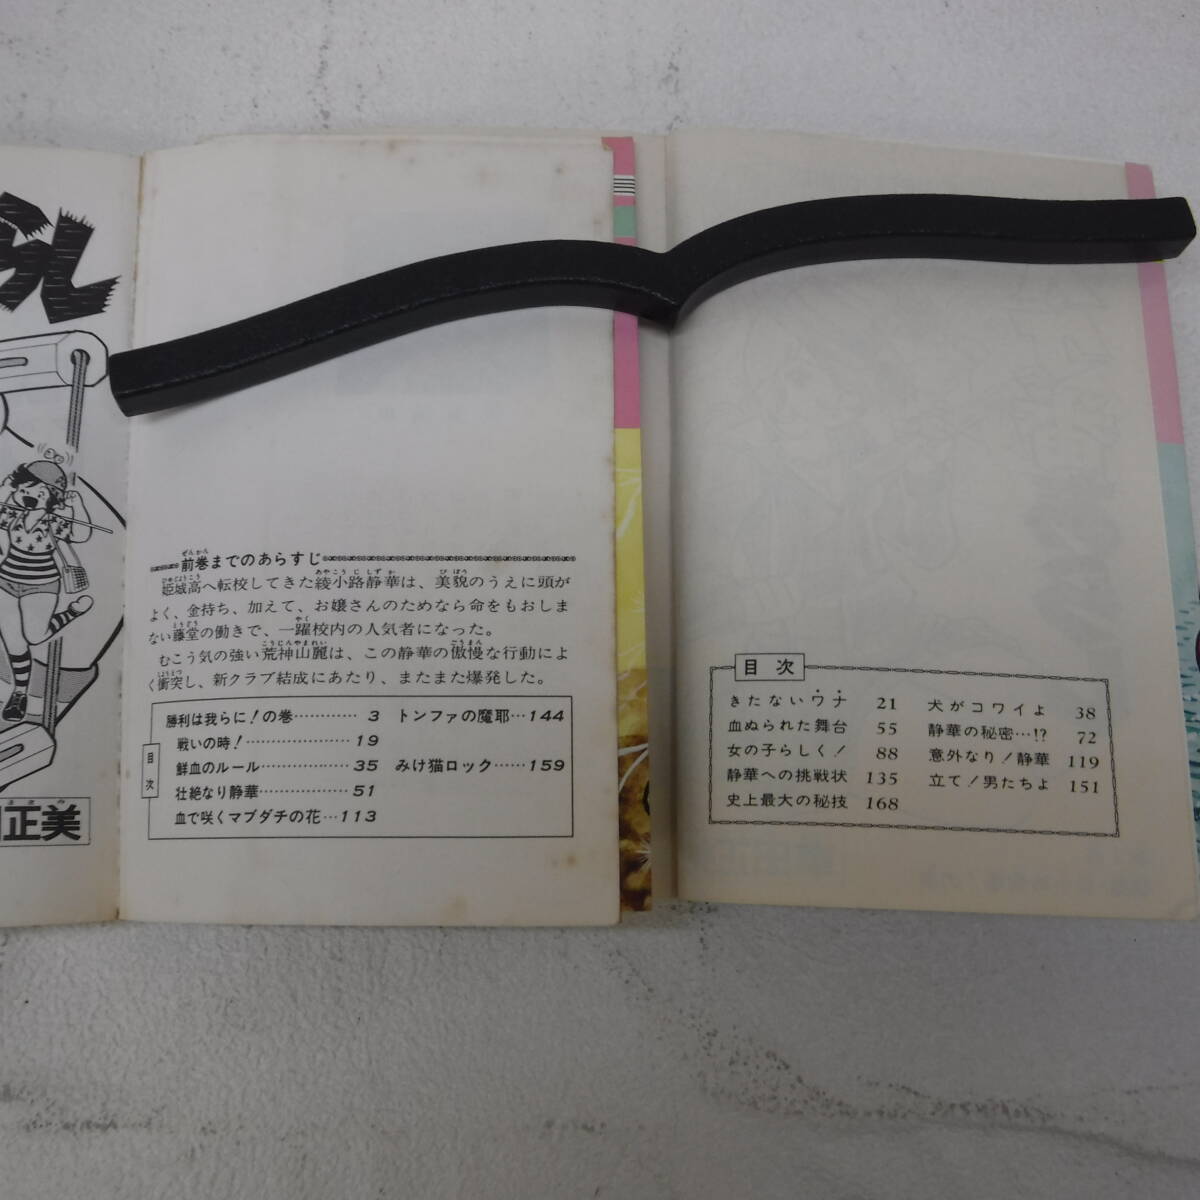 正美
前巻までのあらすじ
ぜんかん
姫城高へ転校してきた綾小路静華は、美貌のうえに頭が
ひめじょうこう
あやこうじしずか
びぼう
よく、金持ち、加えて、お嬢さんのためなら命をもおしま
ない藤堂の働きで、一躍校内の人気者になった。
とうどう
やく
むこう気の強い荒神山麗は、この静華の傲慢な行動によ
こうじんやまれい
ごうまん
く衝突し、新クラブ結成にあたり、またまた爆発した。
しょうとつ
目次
勝利は我らに!の巻………… 3
戦いの時!……………… 19
鮮血のルール…………… 35
壮絶なり静華…………… 51
血で咲くマブダチの花… 113
トンファの魔耶… 144
みけ猫ロック…… 159
目次
きたないワナ 21
犬がコワイよ 38
血ぬられた舞台 55
静華の秘密…!? 72
女の子らしく! 88
意外なり!静華 119
静華への挑戦状 135
立て!男たちよ 151
史上最大の秘技 168